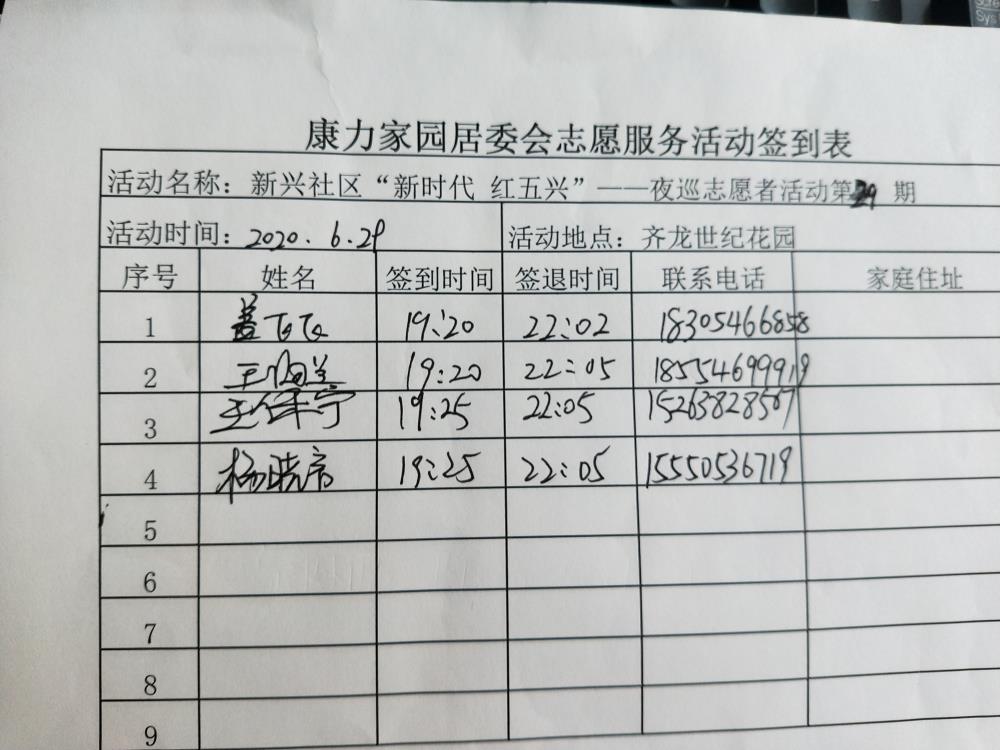 康力家园居委会志愿服务活动签到表
活动名称：新兴社区“新时代 红五兴”——夜巡志愿者活动第29期
活动时间：2020.6.29 活动地点：齐龙世纪花园
序号 姓名 签到时间 签退时间 联系电话 家庭住址
1 盖飞飞 19:20 22:02 18305466858
2 王 19:20 22:05 18554699919
3 王 宁 19:25 22:05 15263828567
4 杨晓 19:25 22:05 15550536719
5
6
7
8
9